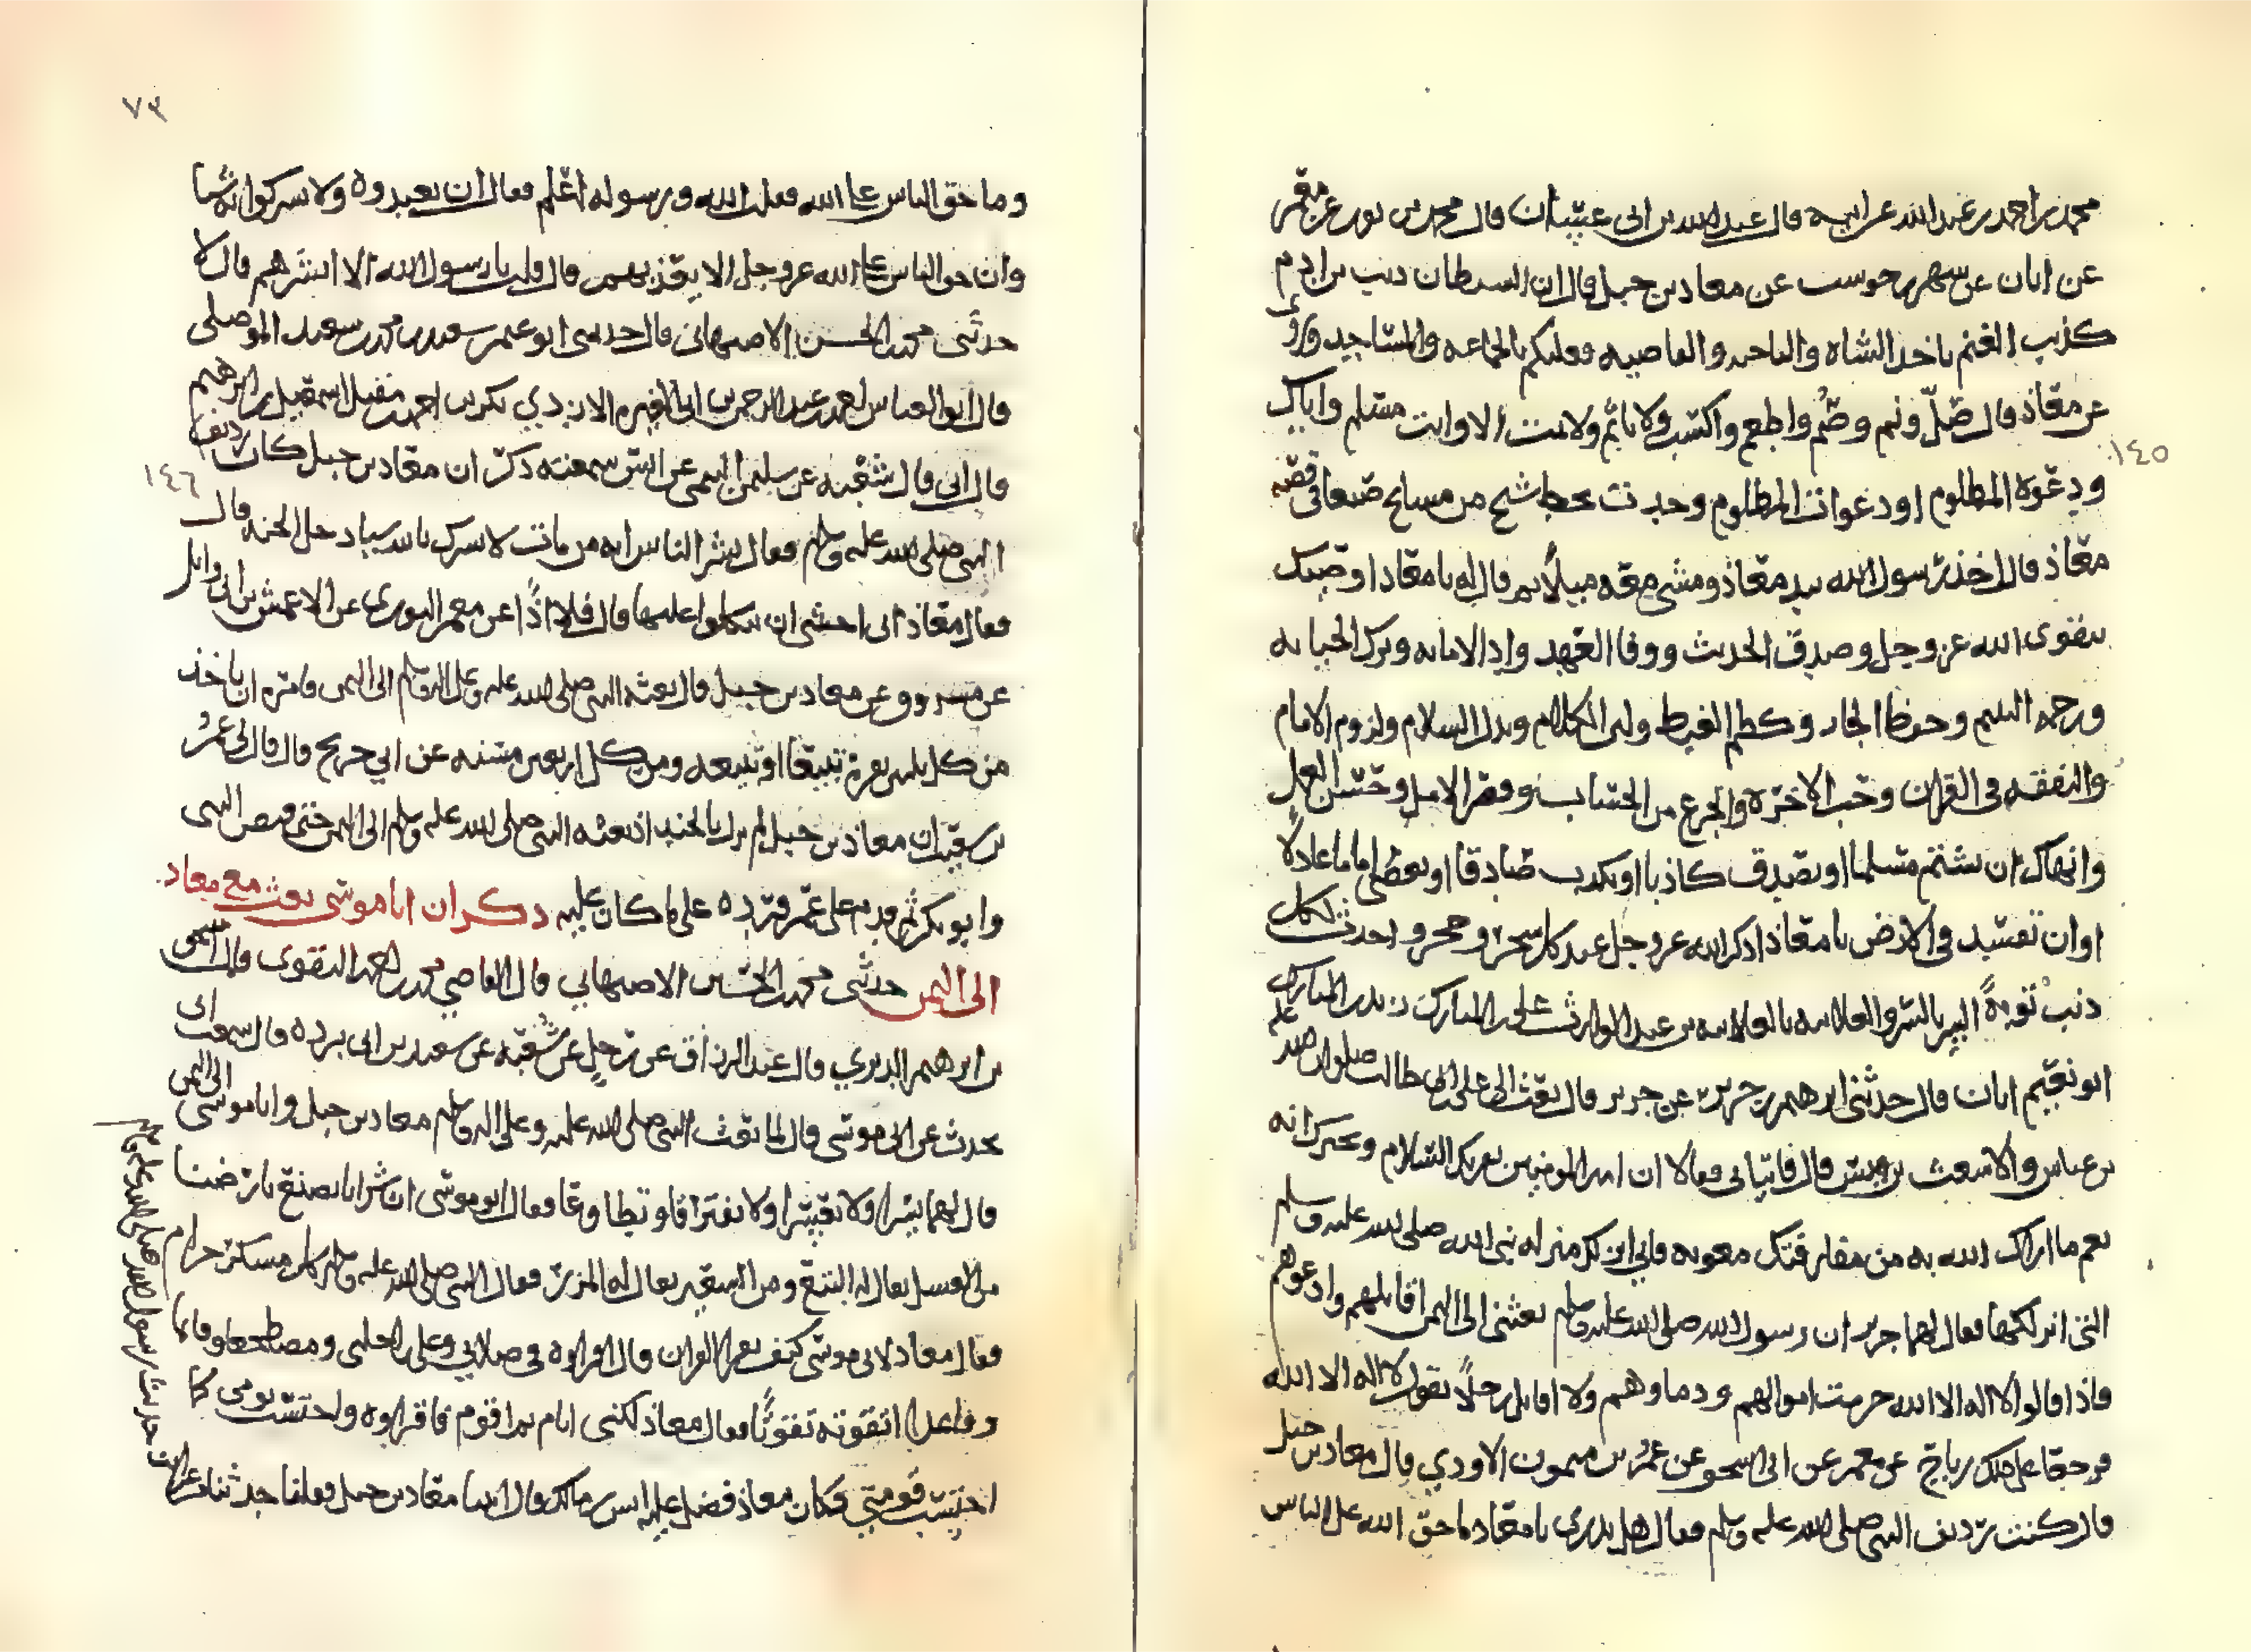 محمد بن احمد بن عبد الله عن ابيه قال عبد الله بن ابى غسان قال محمد بن ثور عن معمر
عن ابان عن شهر بن حوشب عن معاذ بن جبل قال ان الشيطان ذيب بن ادم
كذيب الغنم ياخذ الشاه والناحيه والقاصيه فعليكم بالجماعه والمساجد وروى
عن معاذ قال صلّ ونم وصُم واطعم واكتسب ولا تاثم ولا تمت الا وانت مسلم واياك
ودعوة المظلوم او دعوات المظلوم وجدت بخط شيخ من مسايخ صنعا فى قصة
معاذ قال اخذ رسول الله بيد معاذ ومشى معه ميلاً ثم قال له يا معاذ اوصيك
بتقوى الله عز وجل وصدق الحديث ووفا العهد واد الامانه وترك الخيانه
ورحمه اليتيم وحفظ الجار وكظم الغيظ ولين الكلام وبذل السلام ولزوم الامام
والتفقه فى القران وحب الاخره والجزع من الحساب وقصر الامل وحسن العمل
وانهاك ان تشتم مسلما او تصدق كاذبا او تكذب صادقا او تعصى اماما عادلاً
او ان تفسد فى الارض يا معاذ اذكر الله عز وجل عند كل شجر وحجر واحدث لكل
ذنبْ توبةً السر بالسر والعلانيه بالعلانيه بن عبد الوارث على بن المبارك زيد بن المبارك
ابو نعيم ابان قال حدثنى ابرهيم بن جرير عن جرير قال بعث الى على بن ابى طالب صلوات الله عليه
بن عباس والاشعث بن قيس قال فاتيانى فقالا ان امير المومنين يقريك السلام ويخبرك انه
نعم ما اراك الله به من مفارقتك معويه وانى انزلك منزله نبى الله صلى الله عليه وسلم
التى انزلكها فقال لهما جرير ان رسول الله صلى الله عليه وسلم بعثنى الى اليمن اقاتلهم وادعوهم
فاذا قالوا لا اله الا الله حرمت اموالهم ودماوهم ولا اقاتل رجلاً يقول لا اله الا الله
فرجعا على ذلك رباح عن معمر عن ابى اسحق عن عمرو بن ميمون الاودي قال معاذ بن جبل
قال كنت رديف النبى صلى الله عليه وسلم فقال هل تدرى يا معاذ ما حق الله على الناس
١٤٥
٧٣
وما حق الناس على الله فقلت الله ورسوله اعلم فقال ان يعبدوه ولا يشركوا به شيا
وان حق الناس على الله عز وجل الا يعذبهم قال قلت يا رسول الله الا ابشرهم قال لا
حدثنى محمد بن الحسين الاصبهانى قال حدثنى ابو عمر سعيد بن محمد بن سعيد الموصلى
قال ابو العباس احمد بن عبد الرحمن بن ابى المغيره الازدي بكر بن احمد بن مقبل اسمعيل بن ابرهيم
قال ابى قال شعبه عن سليمن التيمى عن انس سمعته ذكر ان معاذ بن جبل كان رديف
النبى صلى الله عليه وسلم فقال بشر الناس انه من مات لا يشرك بالله شيا دخل الجنه قال
فقال معاذ انى اخشى ان يتكلوا عليها قال فلا اذًا عن معمر الثوري عن الاعمش عن ابى وايل
عن مسروق عن معاذ بن جبل قال بعثه النبى صلى الله عليه وعلى اله وسلم الى اليمن فامره ان ياخذ
من كل ثلثين بقرة تبيعًا او تبيعه ومن كل اربعين مسنه عن ابي جريج قال قال لى عمرو
بن شعيب ان معاذ بن جبل لم يزل بالجند اذ بعثه النبى صلى الله عليه وسلم الى اليمن حتى قبض النبى
وابو بكر ثم قدم على عمر فرده على ما كان عليه ذكر ان ابا موسى بعث مع معاذ
الى اليمن حدثنى محمد بن الحسين الاصبهاني قال القاضي محمد بن احمد النقوى قال اسحق
بن ابرهيم الدبري قال عبد الرزاق عن رجل عن شعبه عن سعيد بن ابى برده قال سمعت ابى
يحدث عن ابى موسى قال لما بعث النبى صلى الله عليه وعلى اله وسلم معاذ بن جبل وابا موسى الى اليمن
قال لهما يسرا ولا تعسرا ولا تفترقا وتطاوعا فقال ابو موسى ان شرابا يصنع بارضنا
من العسل يقال له البتع ومن الشعير يقال له المزر فقال النبى صلى الله عليه وسلم كل مسكر حرام
فقال معاذ لابى موسى كيف تقرا القران قال اقراوه فى صلاتي وعلى راحلتى ومضطجعا وقايما
وقاعدا اتفوقه تفوقًا فقال معاذ لكنى انام ثم اقوم فاقراوه واحتسب نومى كما
احتسب قومتي فكان معاذ فضل عليه انس بن مالك قال اتينا معاذ بن جبل فقلنا حدثنا
١٤٦
من حديث رسول الله صلى الله عليه وسلم